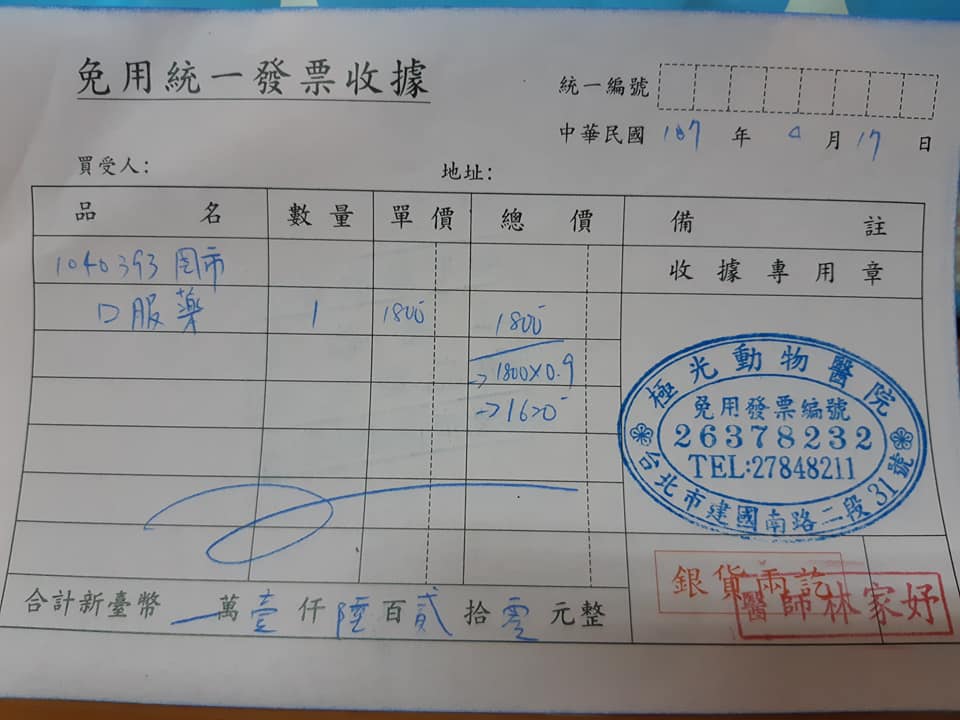 免用統一發票收據
統一編號
中華民國 107 年 月 17 日
買受人： 地址：
品名 數量 單價 總價 備註
1040393 收據專用章
口服藥 1 1800 1800
→1800×0.9
→1620
極光動物醫院
免用發票編號
26378232
TEL:27848211
台北市建國南路二段31號
銀貨兩訖
醫師林家妤
合計新臺幣 萬壹仟陸百貳拾零元整